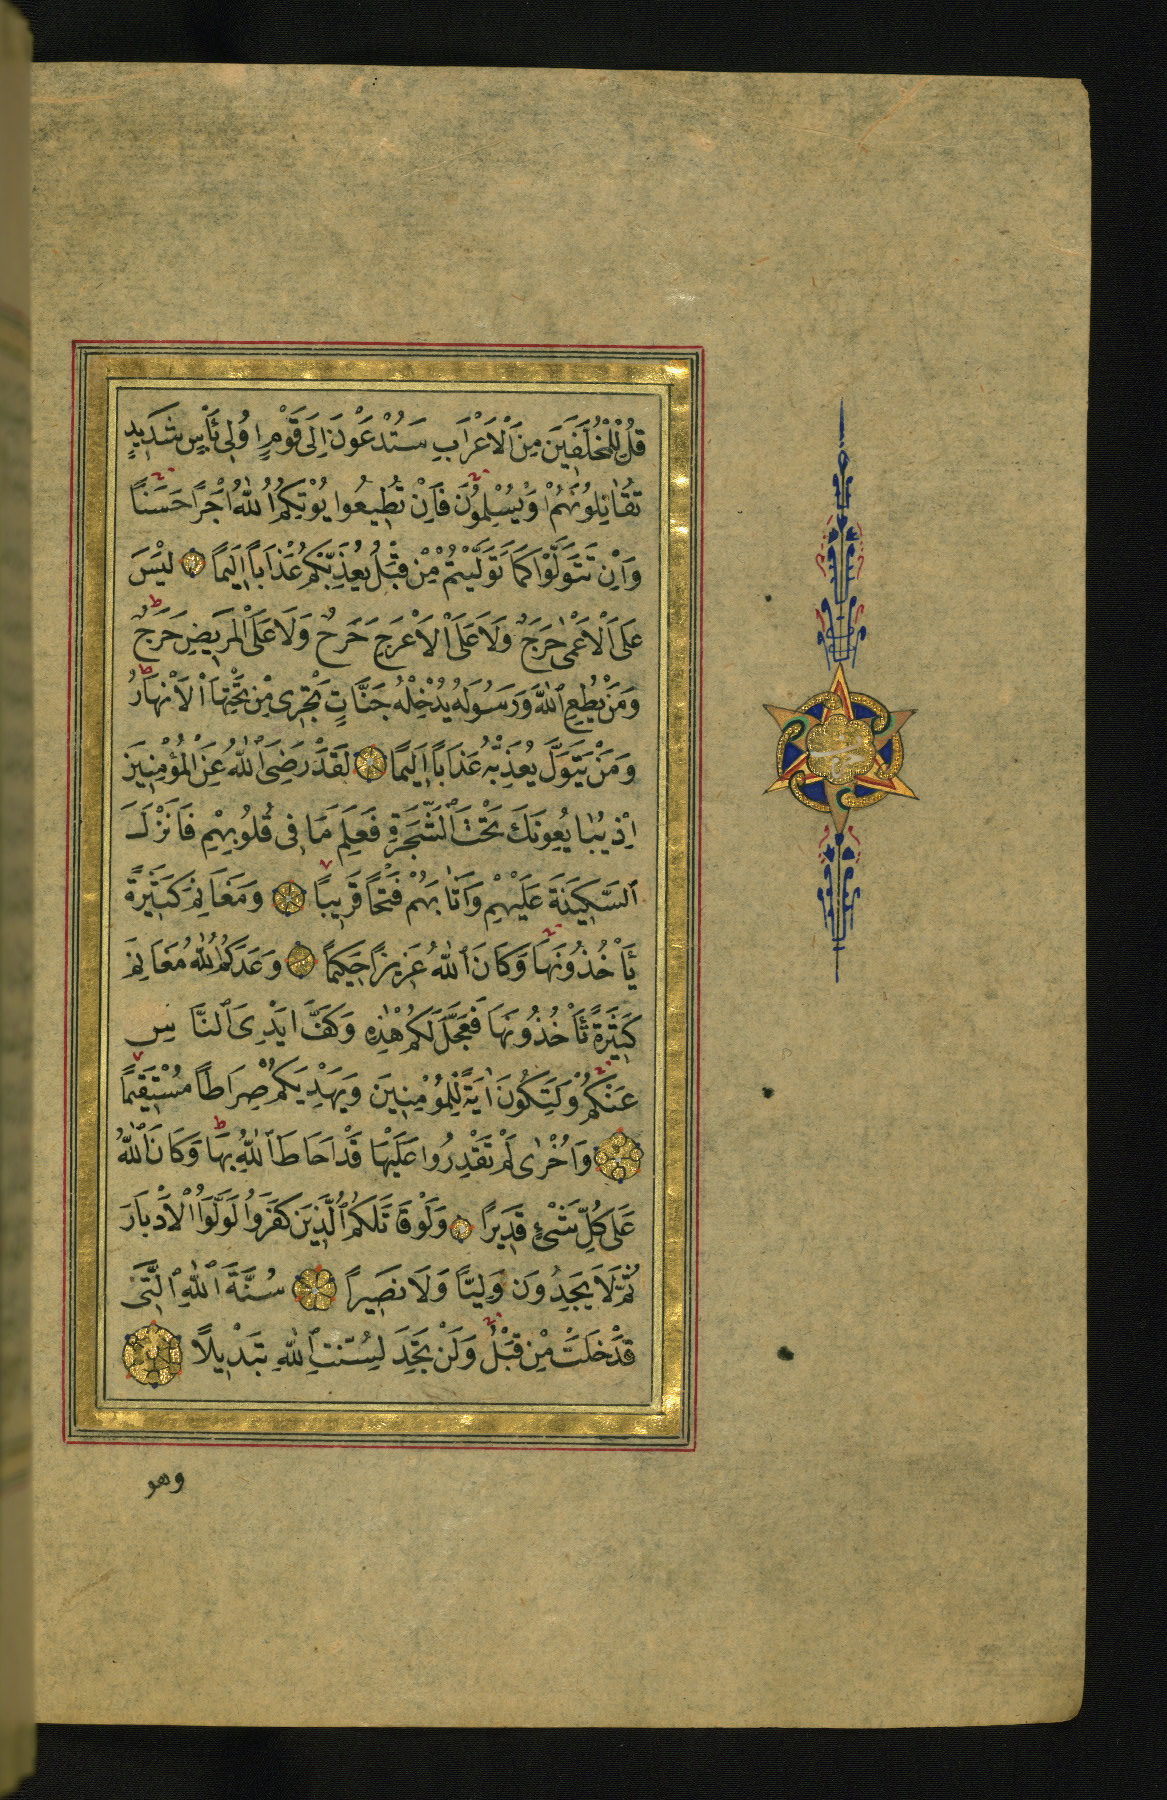 قُلْ لِلْمُخَلَّفِينَ مِنَ الْاَعْرَابِ سَتُدْعَوْنَ اِلٰى قَوْمٍ اُولِى بَأْسٍ شَدِيدٍ
تُقَاتِلُونَهُمْ اَوْ يُسْلِمُونَ فَاِنْ تُطِيعُوا يُؤْتِكُمُ اللّٰهُ اَجْرًا حَسَنًا
وَاِنْ تَتَوَلَّوْا كَمَا تَوَلَّيْتُمْ مِنْ قَبْلُ يُعَذِّبْكُمْ عَذَابًا اَلِيمًا لَيْسَ
عَلَى الْاَعْمٰى حَرَجٌ وَلَا عَلَى الْاَعْرَجِ حَرَجٌ وَلَا عَلَى الْمَرِيضِ حَرَجٌ
وَمَنْ يُطِعِ اللّٰهَ وَرَسُولَهُ يُدْخِلْهُ جَنَّاتٍ تَجْرِى مِنْ تَحْتِهَا الْاَنْهَارُ
وَمَنْ يَتَوَلَّ يُعَذِّبْهُ عَذَابًا اَلِيمًا لَقَدْ رَضِىَ اللّٰهُ عَنِ الْمُؤْمِنِينَ
اِذْ يُبَايِعُونَكَ تَحْتَ الشَّجَرَةِ فَعَلِمَ مَا فِى قُلُوبِهِمْ فَاَنْزَلَ
السَّكِينَةَ عَلَيْهِمْ وَاَثَابَهُمْ فَتْحًا قَرِيبًا وَمَغَانِمَ كَثِيرَةً
يَأْخُذُونَهَا وَكَانَ اللّٰهُ عَزِيزًا حَكِيمًا وَعَدَكُمُ اللّٰهُ مَغَانِمَ
كَثِيرَةً تَأْخُذُونَهَا فَعَجَّلَ لَكُمْ هٰذِهِ وَكَفَّ اَيْدِىَ النَّاسِ
عَنْكُمْ وَلِتَكُونَ اٰيَةً لِلْمُؤْمِنِينَ وَيَهْدِيَكُمْ صِرَاطًا مُسْتَقِيمًا
وَاُخْرٰى لَمْ تَقْدِرُوا عَلَيْهَا قَدْ اَحَاطَ اللّٰهُ بِهَا وَكَانَ اللّٰهُ
عَلٰى كُلِّ شَىْءٍ قَدِيرًا وَلَوْ قَاتَلَكُمُ الَّذِينَ كَفَرُوا لَوَلَّوُا الْاَدْبَارَ
ثُمَّ لَا يَجِدُونَ وَلِيًّا وَلَا نَصِيرًا سُنَّةَ اللّٰهِ الَّتِى
قَدْ خَلَتْ مِنْ قَبْلُ وَلَنْ تَجِدَ لِسُنَّتِ اللّٰهِ تَبْدِيلًا
وهو